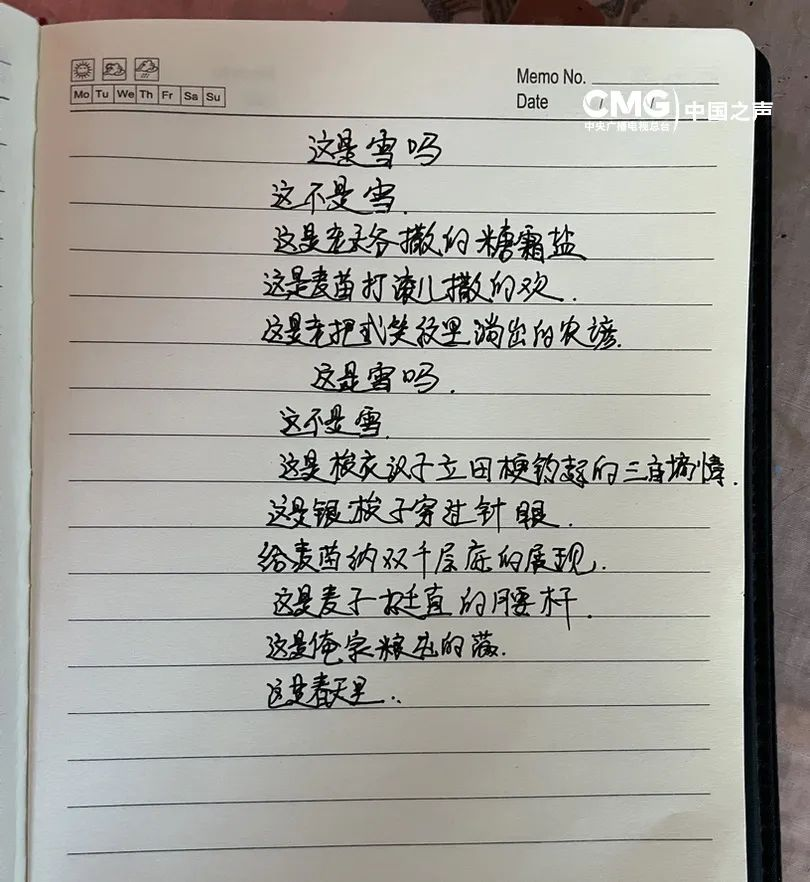 Mo Tu We Th Fr Sa Su
Memo No.
Date / /
CMG 中国之声
中央广播电视总台
这是雪吗
这不是雪.
这是老天爷撒的糖霜盐
这是麦苗打滚儿撒的欢.
这是老把式笑纹里淌出的农谚.
这是雪吗.
这不是雪.
这是 立田埂 的三 墒情.
这是银梭子穿过针眼.
给麦苗纳双千层底的展现.
这是麦子挺直的腰杆.
这是俺家粮 的
这是春天里..